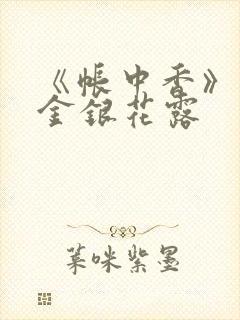 《帐中香》
金银花露
菜咪紫墨